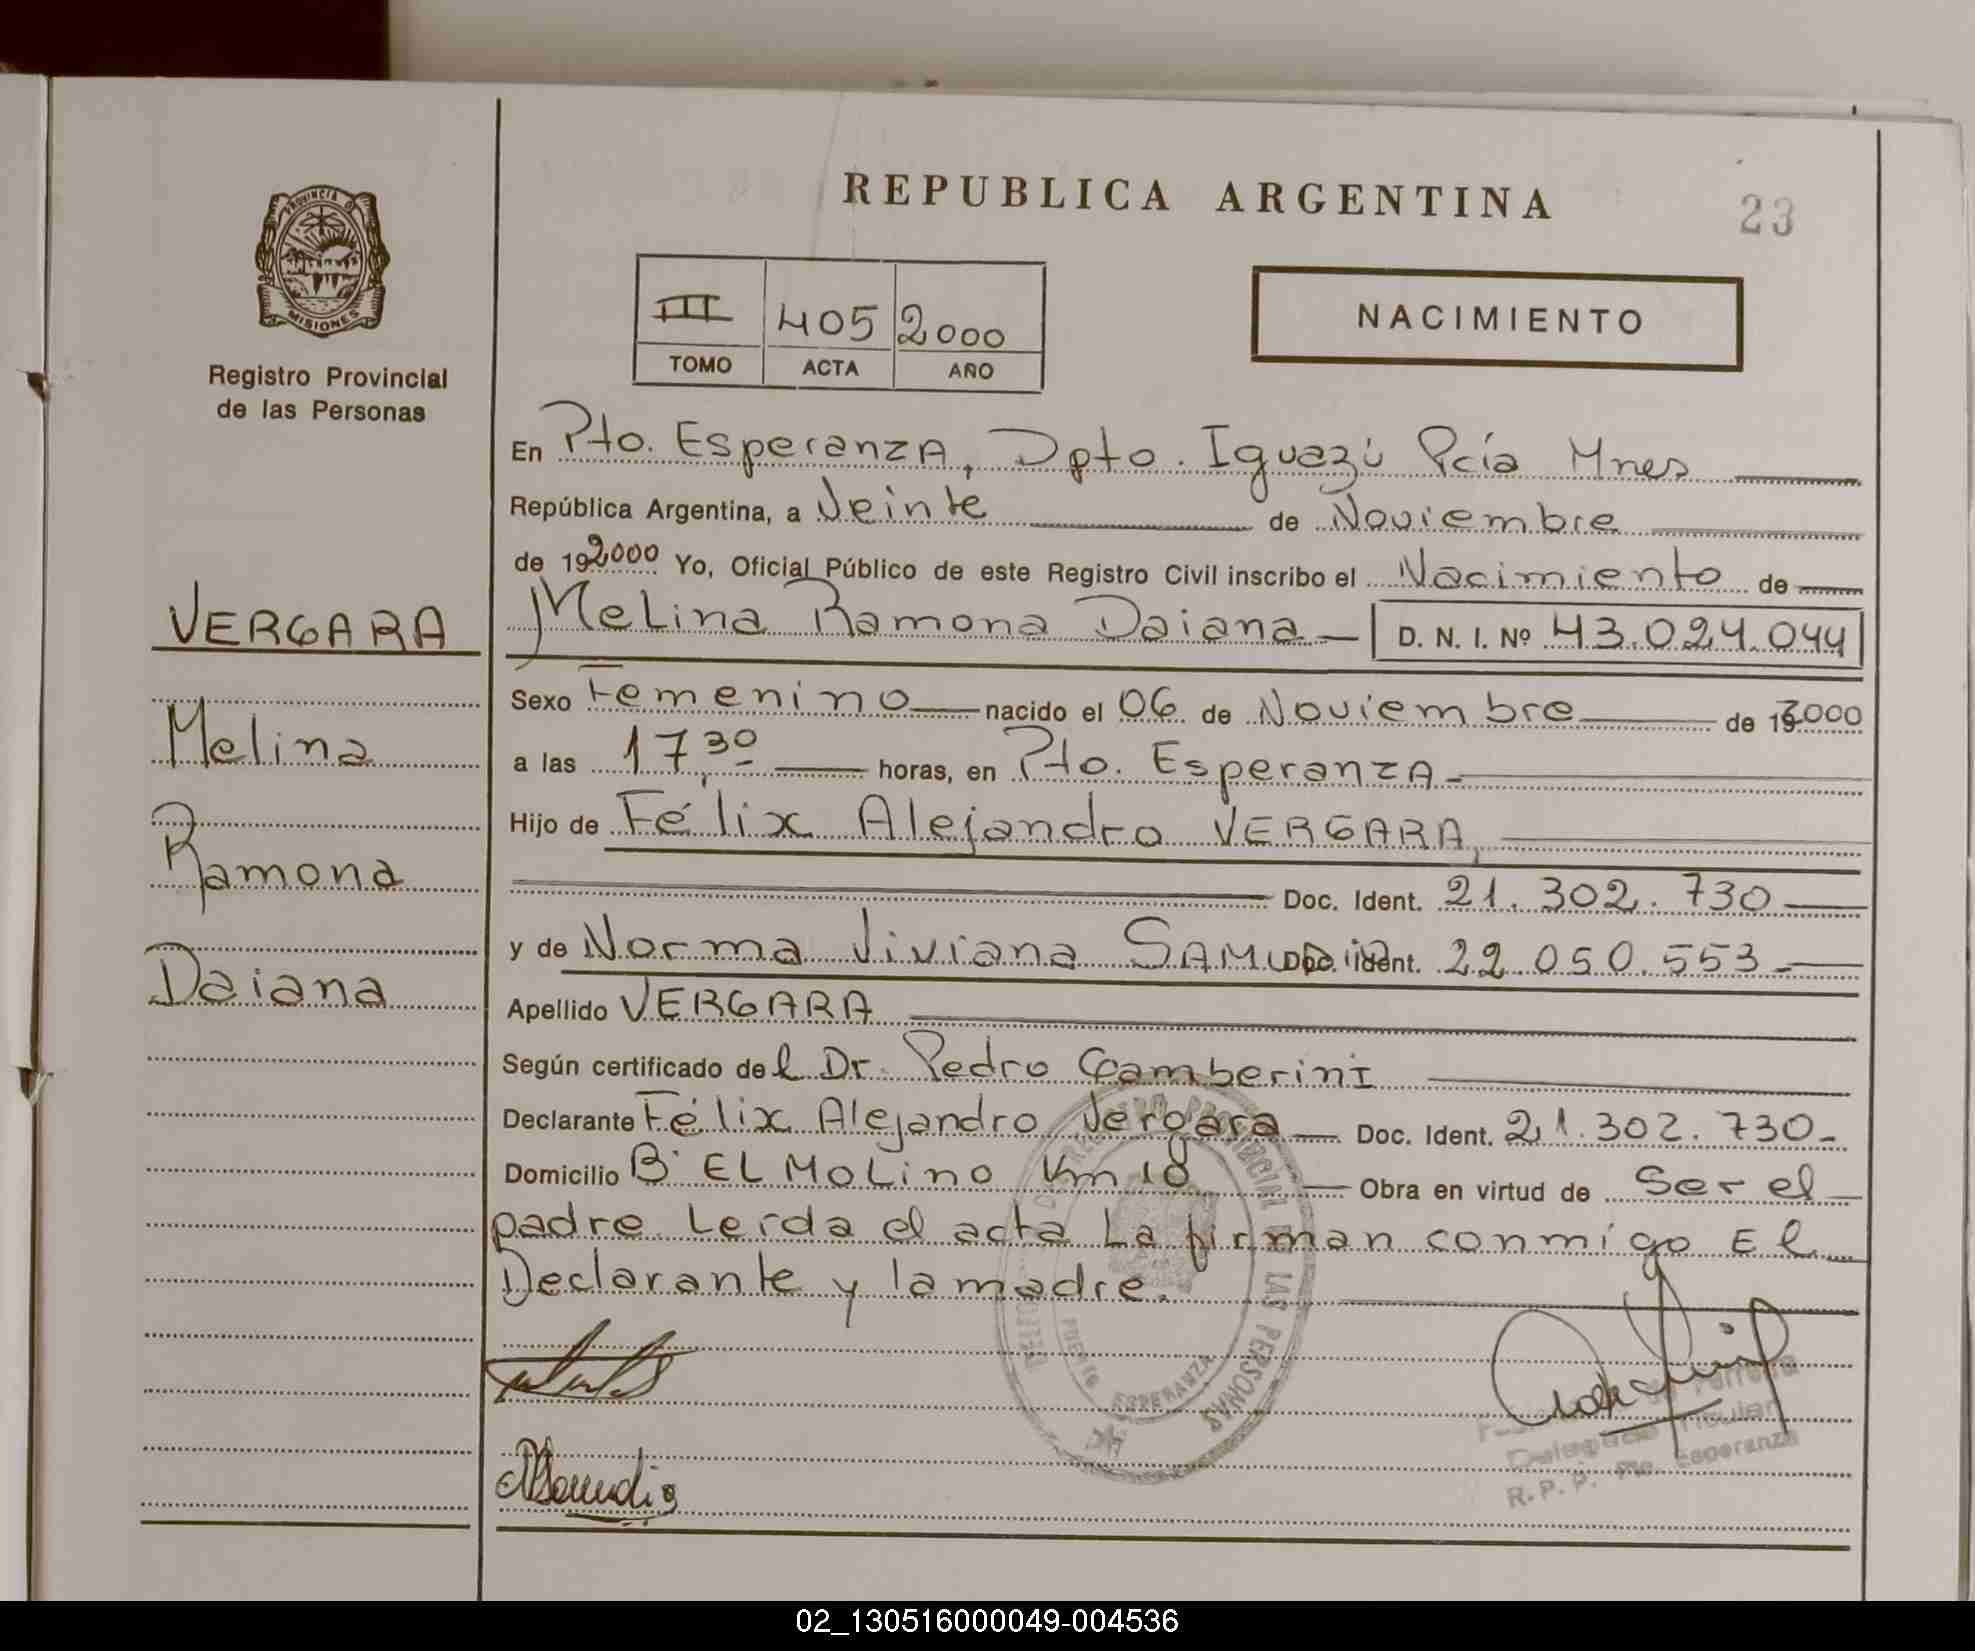 REPUBLICA ARGENTINA
23
PROVINCIA D
MISIONES
Registro Provincial
de las Personas
III 405 2000
TOMO ACTA AÑO
NACIMIENTO
VERGARA
Melina
Ramona
Daiana
En Pto. Esperanza, Dpto. Iguazú Pcía Mnes
República Argentina, a Veinte de Noviembre
de 192000 Yo, Oficial Público de este Registro Civil inscribo el Nacimiento de
Melina Ramona Daiana D. N. I. Nº 43.024.044
Sexo Femenino nacido el 06 de Noviembre de 192000
a las 17,30 horas, en Pto. Esperanza
Hijo de Félix Alejandro VERGARA,
Doc. Ident. 21.302.730
y de Norma Viviana SAMUDio Doc. Ident. 22.050.553
Apellido VERGARA
Según certificado del Dr. Pedro Gamberini
Declarante Félix Alejandro Vergara Doc. Ident. 21.302.730
Domicilio B° EL MoLino Km 18 Obra en virtud de Ser el
padre. Leida el acta La firman conmigo El
Declarante y la madre.
REGISTRO PROVINCIAL DE LAS PERSONAS
PUERTO ESPERANZA
Delegado Titular
R.P.P. Pto. Esperanza
02_130516000049-004536